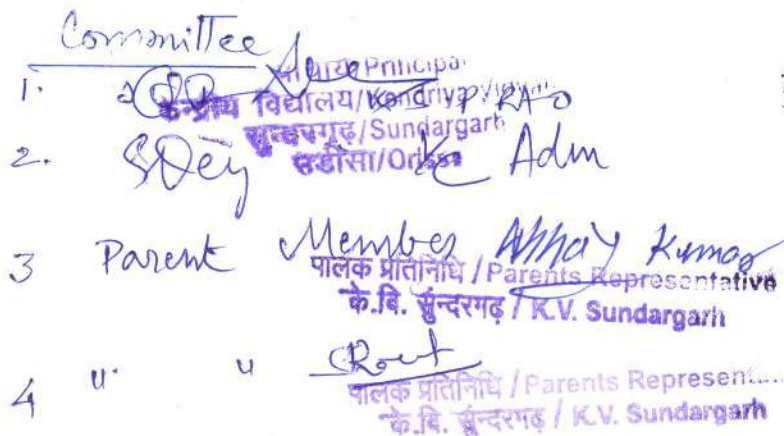 Committee
प्राचार्य/Principal
1. P RAO
केन्द्रीय विद्यालय/Kendriya
सुन्दरगढ़/Sundargarh
2. SDey Adm
उडीसा/Orissa
3 Parent Member Abhay Kumar
पालक प्रतिनिधि / Parents Representative
के.वि. सुंन्दरगढ़ / K.V. Sundargarh
4 " " Rout
पालक प्रतिनिधि / Parents Represent
के.वि. सुंन्दरगढ़ / K.V. Sundargarh